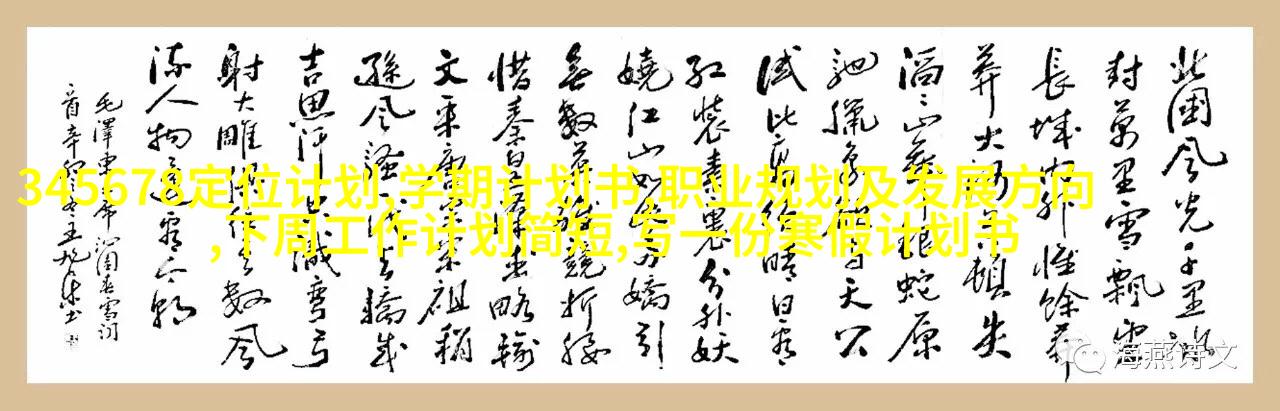 345678定位计划,学期计划书,职业规划及发展方向
,下周工作计划简短,写一份寒假计划书
北國风光千里冰
封萬里雪飘望
長城内外惟餘莽
莽大河上下頓失
滔滔山舞银蛇原
馳臘象欲与天公
試比高须晴日看
红装素裹分外妖
嬈江山如此多嬌引
無數英雄競折腰
惜秦皇漢武略输
文采唐宗宋祖稍
遜风騷一代天驕成
吉思汗只識彎弓
射大雕俱往矣數风
流人物還看今朝
毛澤東 沁園春雪詞
辛卯之冬 书
海燕诗文